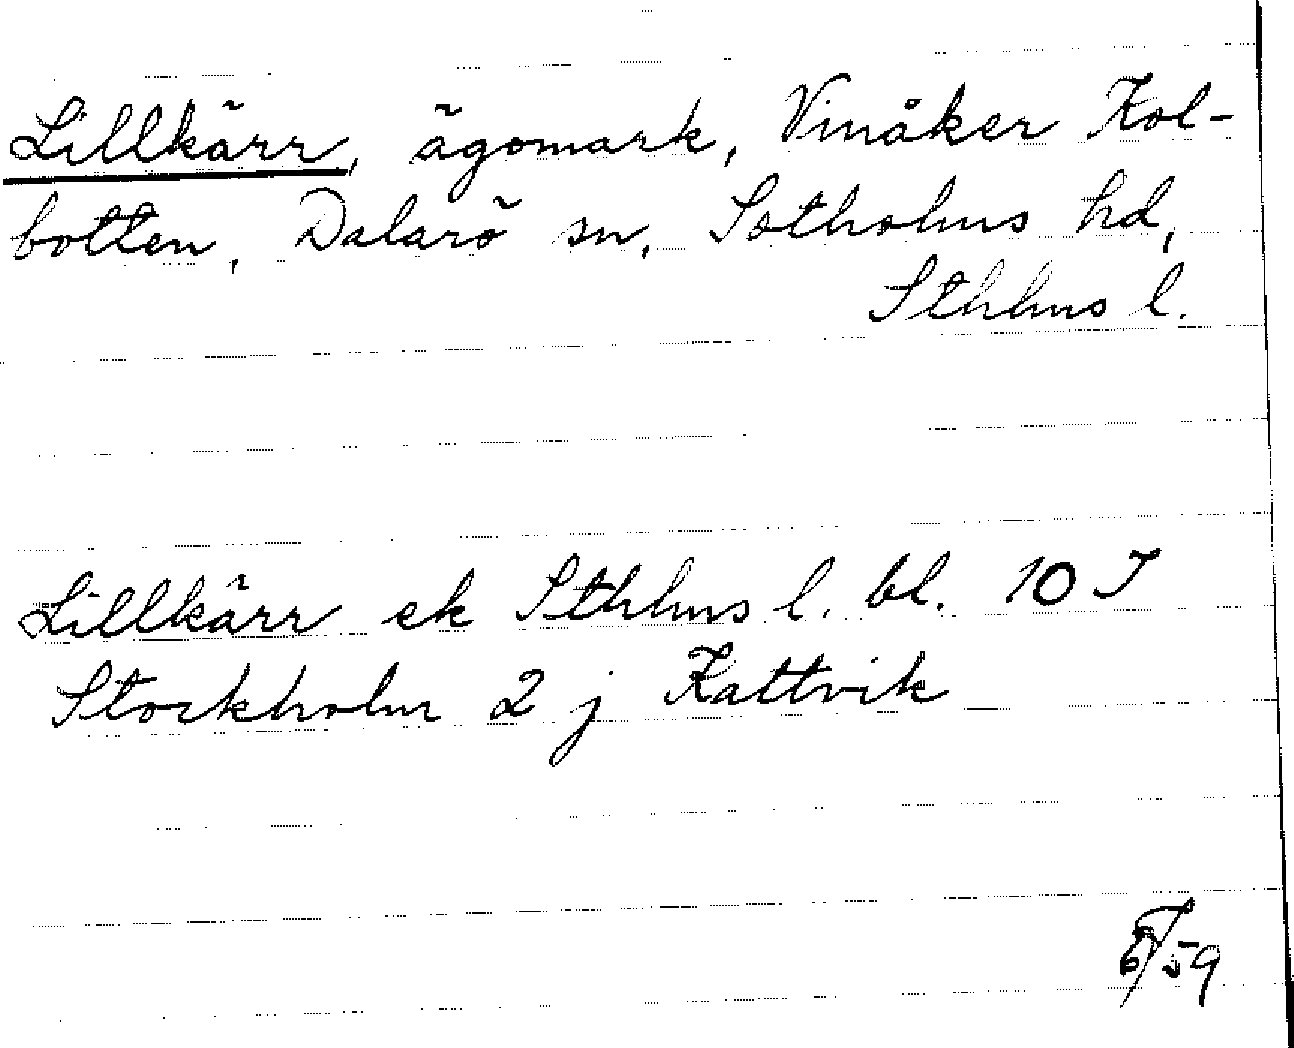 Lillkärr, ägomark, Vinåker Kol-
botten, Dalarö sn, Sotholms hd,
Sthlms l.
Lillkärr ek Sthlms l. bl. 10 J
Stockholm 2 j Kattvik
59